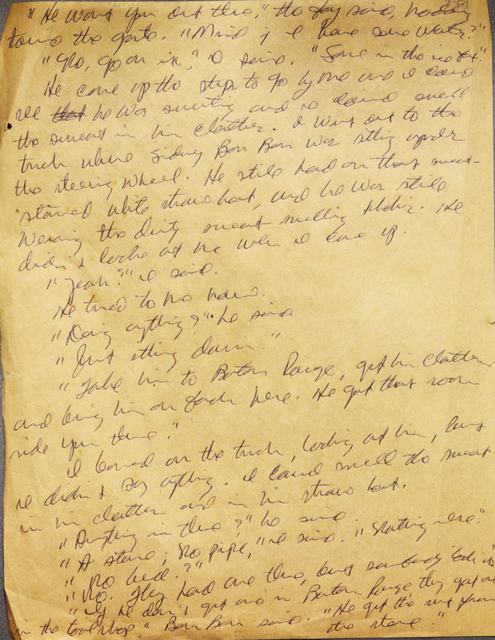 "He want you out there," the boy said, nodding
toward the gate. "Mind if I have some water?"
"No, go on in," I said. "Some in the icebox."
He came up the steps to go by me and I could
see he was sweating and I could smell
the sweat in his clothes. I went out to the
truck where Sidney Bon Bon was sitting under
the steering wheel. He still had on that sweat-
stained white straw hat, and he was still
wearing the dirty sweat-smelling khakis. He
didn't look at me when I came up.
"Yeah?" I said.
He turned to me now.
"Doing anything?" he said
"Just sitting down."
"Take him to Baton Rouge, get his clothes
and bring him on back here. He got that room
side you there."
I leaned on the truck, looking at him, but
I didn't say anything. I could smell the sweat
in his clothes and in his straw hat.
"Anything in there?" he said.
"A stove; no pipe," I said. "Nothing else."
"No bed?"
"No. They had one there, but somebody took it"
"If he don't get one in Baton Rouge they got one
in the toolshop" Bon Bon said. "He get the rest from
the store."